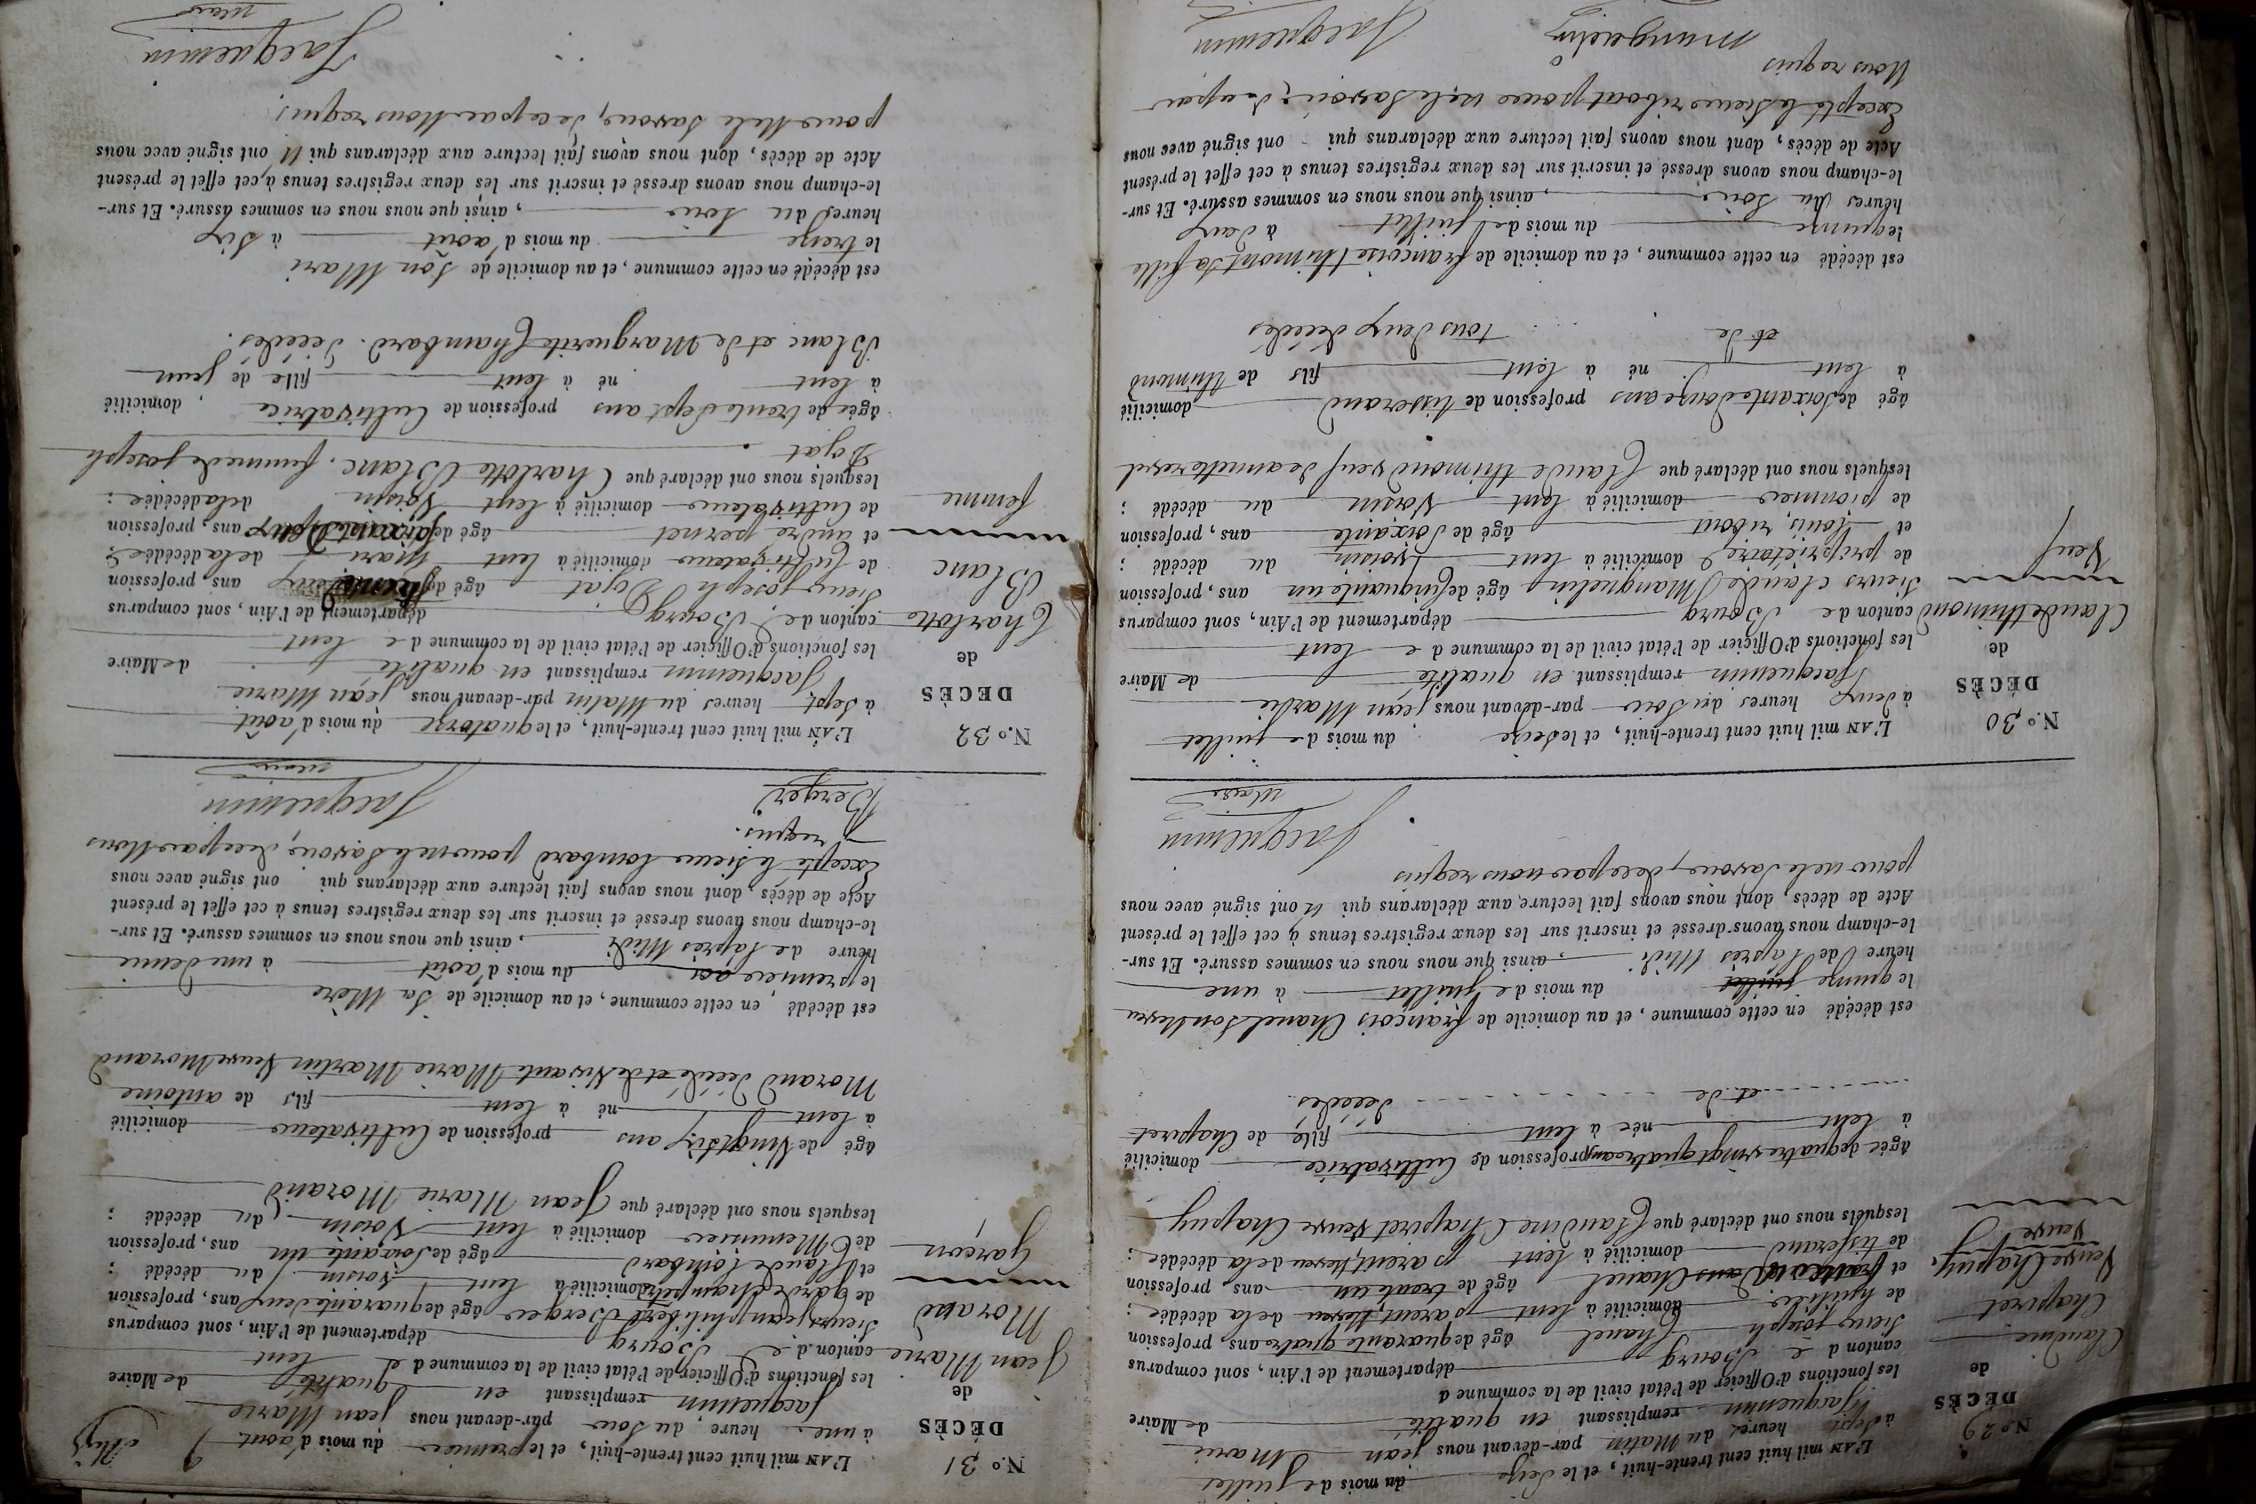 N.º 29
DÉCÈS
de
Claudine
Chapiret
Veuve Chapuy
Veuve
L'AN mil huit cent trente-huit, et le Seize du mois de juillet
à sept heures du Matin par-devant nous jean Marie
Jacquemin remplissant en qualité de Maire
les fonctions d'Officier de l'état civil de la commune d
canton de Bourg département de l'Ain, sont comparus
Sieurs joseph Chanel âgé de quarante quatre ans, profession
de domicilié à lent parent, neveu de la décédée ;
et françois Chanel âgé de trente un ans, profession
de tisserand domicilié à lent parent, neveu de la décédée ;
lesquels nous ont déclaré que Claudine Chapiret veuve Chapuy
âgée de quatre vingt quatre ans profession de Cultivatrice domicilié
à lent née à lent fille de Chapiret
et de décédés
est décédée en cette commune, et au domicile de françois Chanel son Neveu
le quinze juillet du mois de juillet à une
heure de l'après Midi, ainsi que nous nous en sommes assuré. Et sur-
le-champ nous avons dressé et inscrit sur les deux registres tenus à cet effet le présent
Acte de décès, dont nous avons fait lecture aux déclarans qui n'ont signé avec nous
pour ne le Savoir, de ce par nous requis
Jacquemin
Maire
N.º 30
DÉCÈS
de
Claude thimond
Veuf
L'AN mil huit cent trente-huit, et le seize du mois de juillet
à deux heures du Soir par-devant nous jean Marie
Jacquemin remplissant en qualité de Maire
les fonctions d'Officier de l'état civil de la commune de lent
canton de Bourg département de l'Ain, sont comparus
Sieurs claude Manguelin âgé de cinquante un ans, profession
de propriétaire domicilié à lent voisin du décédé ;
et Louis ribout âgé de Soixante ans, profession
de domicilié à lent voisin du décédé ;
lesquels nous ont déclaré que Claude thimond veuf
âgé de Soixante douze ans profession de tisserand domicilié
à lent né à lent fils de thimond
et de tous deux décédés
est décédé en cette commune, et au domicile de françoise thimont Sa fille
le quinze du mois de juillet à deux
heures du Soir, ainsi que nous nous en sommes assuré. Et sur-
le-champ nous avons dressé et inscrit sur les deux registres tenus à cet effet le présent
Acte de décès, dont nous avons fait lecture aux déclarans qui ont signé avec nous
Excepté le Sieur ribout pour ne le Savoir, de ce par
Nous requis
Jacquemin
N.º 31
DÉCÈS
de
Jean Marie
Morand
Garçon
L'AN mil huit cent trente-huit, et le premier du mois d'aout
à une heure du Soir par-devant nous jean Marie
jacquemin remplissant en qualité de Maire
les fonctions d'Officier de l'état civil de la commune de lent
canton de Bourg département de l'Ain, sont comparus
Sieurs jean philibert Berger âgé de quarante deux ans, profession
de Garde Champetre domicilié à lent voisin du décédé ;
et Claude Lombard âgé de Soixante un ans, profession
de Menuisier domicilié à lent Voisin du décédé ;
lesquels nous ont déclaré que Jean Marie Morand
âgé de Vingt Six ans profession de Cultivateur domicilié
à lent né à lent fils de antoine
Morand Décédé et de Vivante Marie Martin Veuve Morand
est décédé, en cette commune, et au domicile de Sa Mère
le premier du mois d'août à une demie
heure de l'après Midi, ainsi que nous nous en sommes assuré. Et sur-
le-champ nous avons dressé et inscrit sur les deux registres tenus à cet effet le présent
Acte de décès, dont nous avons fait lecture aux déclarans qui ont signé avec nous
Excepté le Sieur Lombard pour ne le Savoir, de ce par Nous
requis.
Berger
Jacquemin
Maire
N.º 32
DÉCÈS
de
Charlotte
Blanc
femme
L'AN mil huit cent trente-huit, et le quatorze du mois d'août
à Sept heures du Matin par-devant nous jean Marie
Jacquemin remplissant en qualité de Maire
les fonctions d'Officier de l'état civil de la commune de lent
canton de Bourg département de l'Ain, sont comparus
Sieurs joseph Dojat âgé de ans, profession
de Cultivateur domicilié à lent Mari de la décédée ;
et andré pernet âgé de Soixante Deux ans, profession
de Cultivateur domicilié à lent Voisin de la décédée ;
lesquels nous ont déclaré que Charlotte Blanc, femme de joseph
Dojat
âgée de trente Sept ans profession de Cultivatrice, domicilié
à lent né à lent fille de jean
Blanc et de Marguerite Chambard. Décédés.
est décédée en cette commune, et au domicile de Son Mari
le treize du mois d'aout à Six
heures du Soir, ainsi que nous nous en sommes assuré. Et sur-
le-champ nous avons dressé et inscrit sur les deux registres tenus à cet effet le présent
Acte de décès, dont nous avons fait lecture aux déclarans qui n'ont signé avec nous
pour Ne le Savoir, de ce par Nous requis.
Jacquemin
Maire